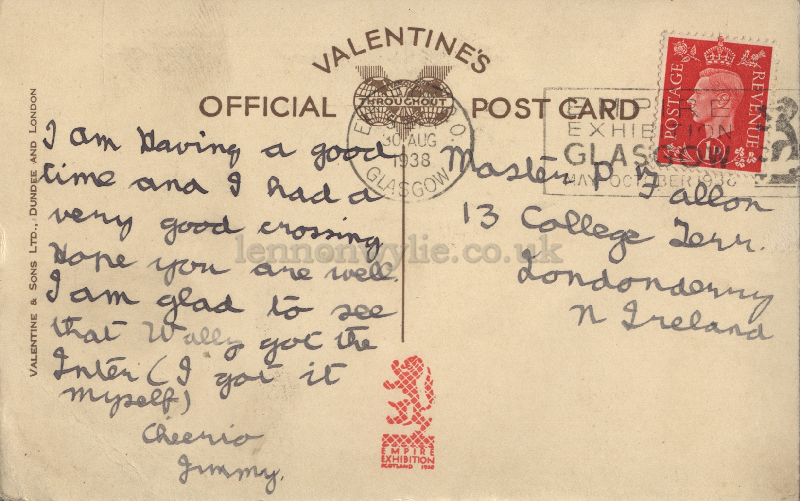 VALENTINE'S
OFFICIAL THROUGHOUT POST CARD
30 AUG
1938
GLASGOW
EXHIBITION
GLASGOW
MAY-OCTOBER 1938
POSTAGE REVENUE
I am Having a good
time and I had a
very good crossing
Hope you are well
I am glad to see
that Wally got the
Inter (I got it
myself)
Cheerio
Jimmy.
Master P Fallon
13 College Terr.
Londonderry
N Ireland
VALENTINE & SONS LTD., DUNDEE AND LONDON
EMPIRE
EXHIBITION
SCOTLAND 1938
lennonwylie.co.uk